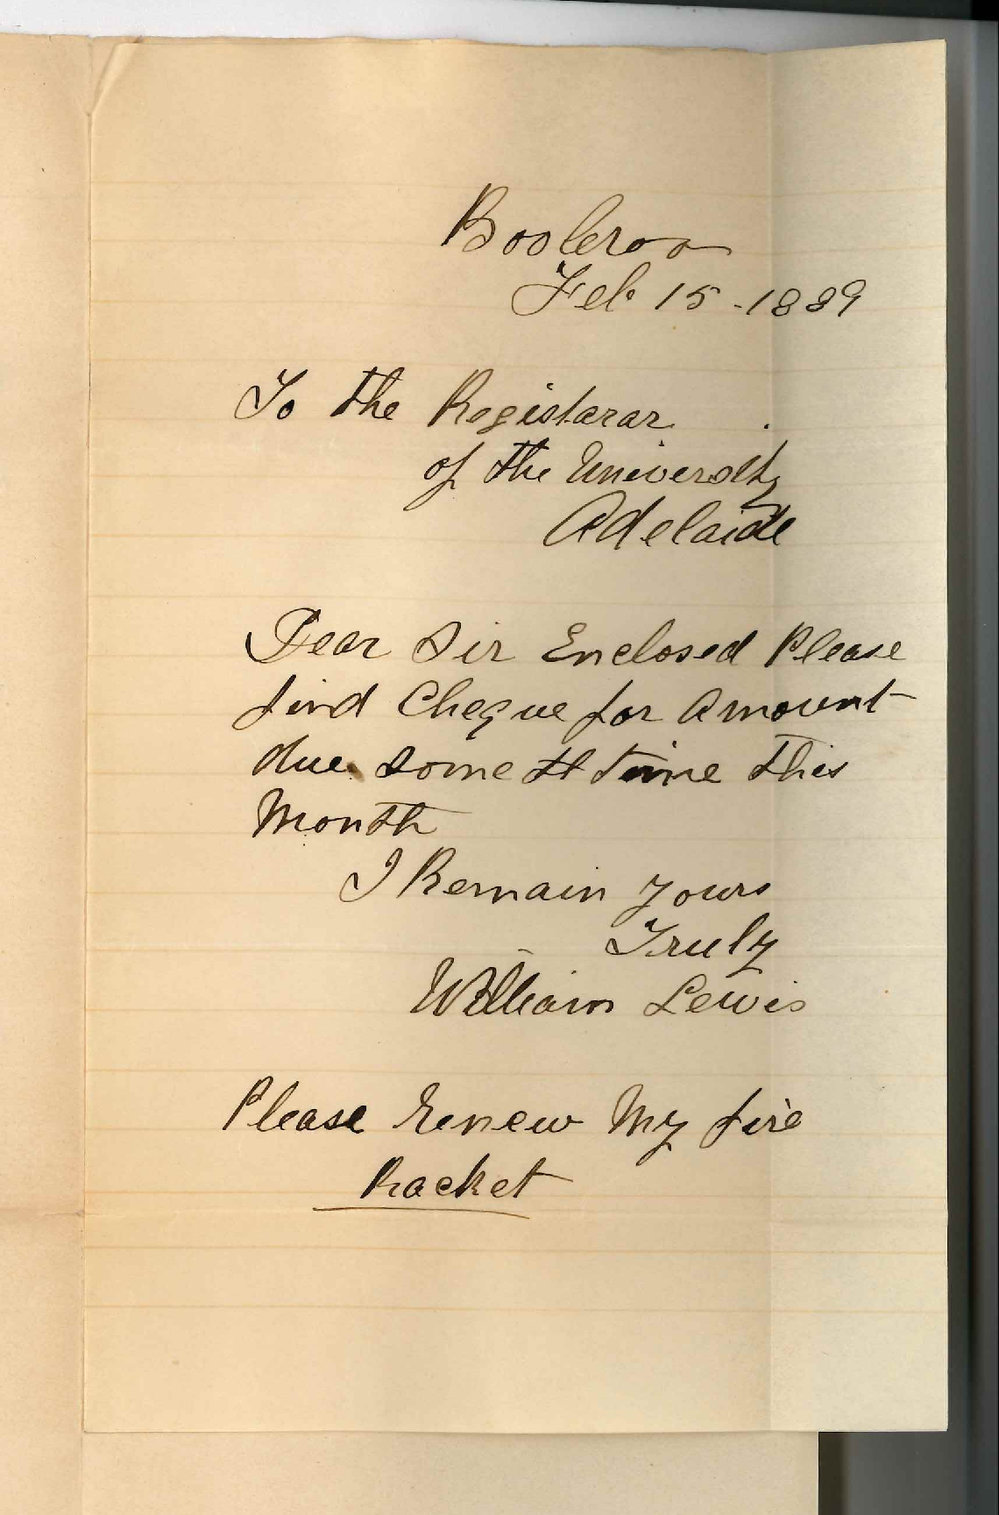 Booleroo
Feb 15 - 1889
To the Registarar
of the University
Adelaide
Dear Sir Enclosed Please
find Cheque for Amount
due some tt time this
Month
I Remain yours
Truly
William Lewis
Please renew My fire
Racket